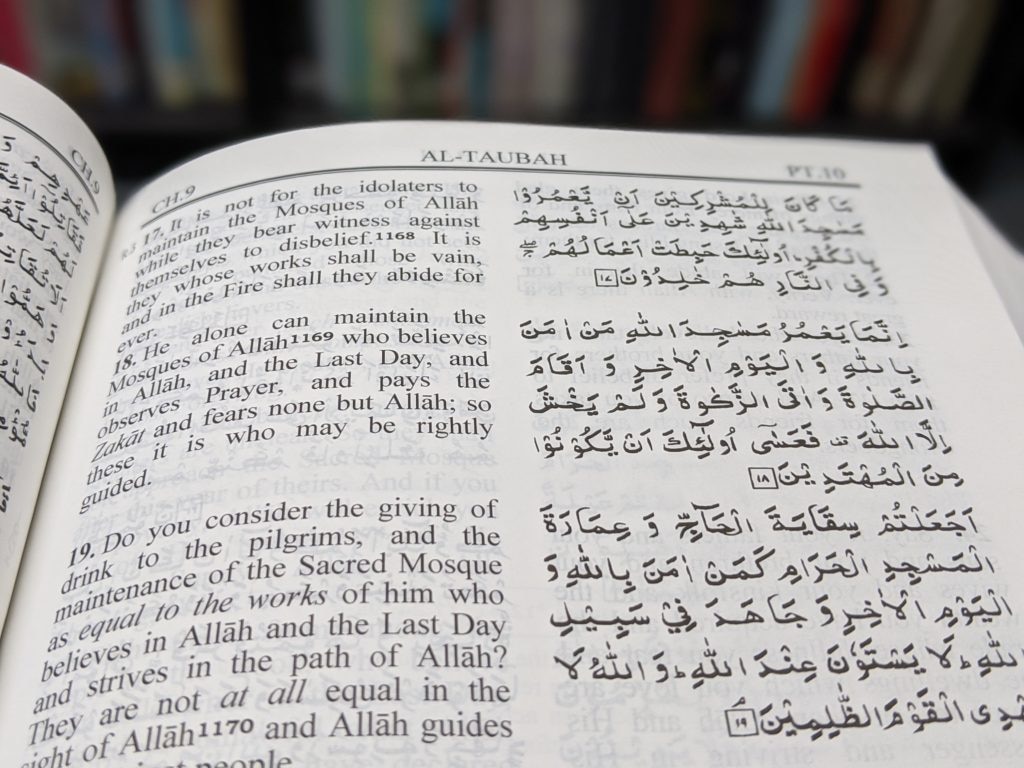 AL-TAUBAH
CH.9
CH.9
PT.10
R.3 17. It is not for the idolaters to
maintain the Mosques of Allāh
while they bear witness against
themselves to disbelief.1168 It is
they whose works shall be vain,
and in the Fire shall they abide for
ever.
18. He alone can maintain the
Mosques of Allāh1169 who believes
in Allāh, and the Last Day, and
observes Prayer, and pays the
Zakāt and fears none but Allāh; so
these it is who may be rightly
guided.
19. Do you consider the giving of
drink to the pilgrims, and the
maintenance of the Sacred Mosque
as equal to the works of him who
believes in Allāh and the Last Day
and strives in the path of Allāh?
They are not at all equal in the
sight of Allāh1170 and Allāh guides
people.
مَا كَانَ لِلْمُشْرِكِيْنَ اَنْ يَّعْمُرُوْا
مَسٰجِدَ اللّٰهِ شٰهِدِيْنَ عَلٰۤى اَنْفُسِهِمْ
بِالْكُفْرِ ؕ اُولٰٓئِكَ حَبِطَتْ اَعْمَالُهُمْ ۚۖ
وَفِي النَّارِ هُمْ خٰلِدُوْنَ ۱۷
اِنَّمَا يَعْمُرُ مَسٰجِدَ اللّٰهِ مَنْ اٰمَنَ
بِاللّٰهِ وَ الْيَوْمِ الْاٰخِرِ وَ اَقَامَ
الصَّلٰوةَ وَ اٰتَى الزَّكٰوةَ وَ لَمْ يَخْشَ
اِلَّا اللّٰهَ ۟ فَعَسٰۤى اُولٰٓئِكَ اَنْ يَّكُوْنُوْا
مِنَ الْمُهْتَدِيْنَ ۱۸
اَجَعَلْتُمْ سِقَايَةَ الْحَآجِّ وَ عِمَارَةَ
الْمَسْجِدِ الْحَرَامِ كَمَنْ اٰمَنَ بِاللّٰهِ وَ
الْيَوْمِ الْاٰخِرِ وَ جَاهَدَ فِيْ سَبِيْلِ
اللّٰهِ ؕ لَا يَسْتَوٗنَ عِنْدَ اللّٰهِ ؕ وَ اللّٰهُ لَا
يَهْدِى الْقَوْمَ الظّٰلِمِيْنَ ۱۹